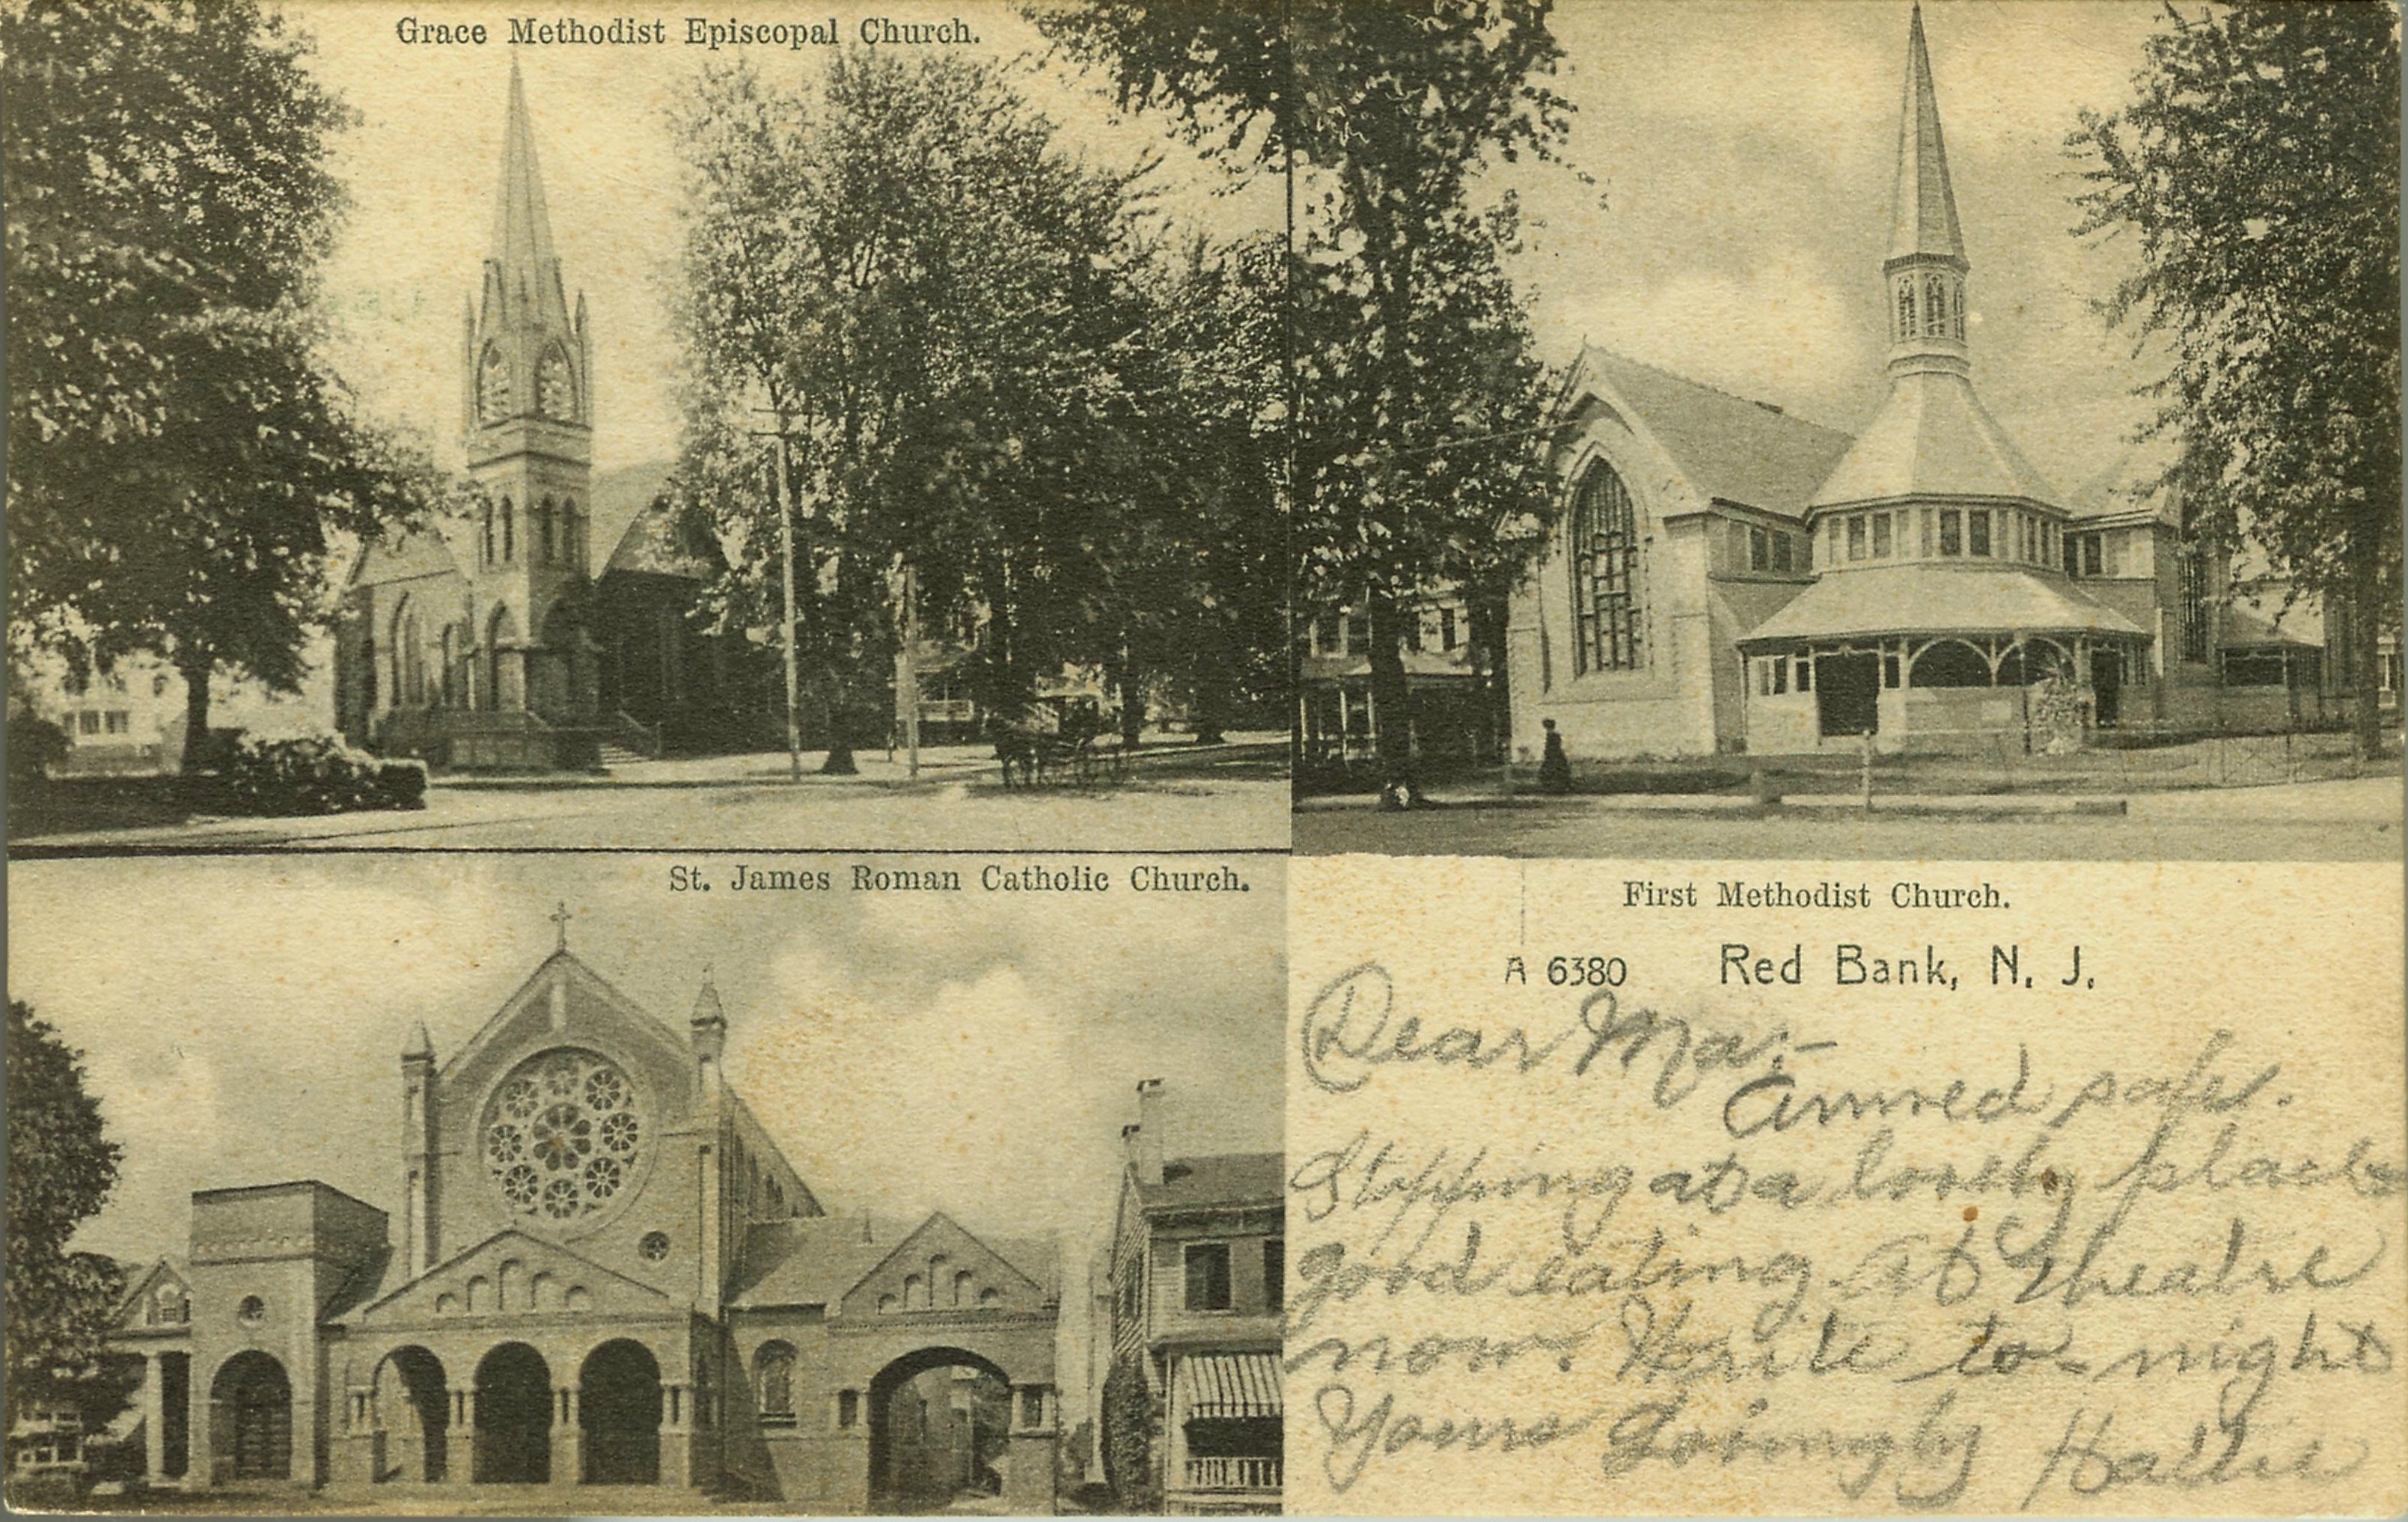 Grace Methodist Episcopal Church.
St. James Roman Catholic Church.
First Methodist Church.
A 6380 Red Bank, N. J.
Dear Ma:-
Arrived safe.
Stopping at a lovely place
good eating. At Theatre
now. Write to-night
Yours Lovingly Hallie